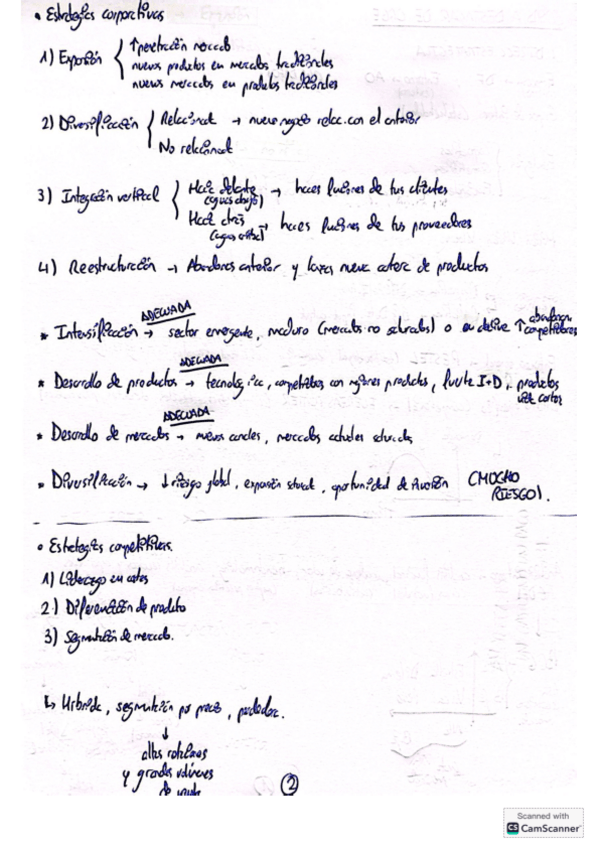 • Estrategias corporativas
1) Expansión { ↑ penetración mercado
nuevos productos en mercados tradicionales
nuevos mercados en productos tradicionales
2) Diversificación { Relacional → nuevo negocio relac. con el anterior
No relacional
3) Integración vertical { Hacia delante → haces funciones de tus clientes
(aguas abajo)
Hacia atrás → haces funciones de tus proveedores
(aguas arriba)
4) Reestructuración → Abandonas anterior y lanzas nueva cartera de productos
ADECUADA
* Intensificación → sector emergente, maduro (mercados no saturados) o en declive ↑ abandonan competidores
ADECUADA
* Desarrollo de productos → tecnológica, competidores con mejores productos, fuerte I+D, productos vida cortos
ADECUADA
* Desarrollo de mercados → nuevos canales, mercados actuales saturados
* Diversificación → ↓ riesgo global, expansión saturada, oportunidad de inversión (MUCHO RIESGO).
• Estrategias competitivas.
1) Liderazgo en costes
2) Diferenciación de producto
3) Segmentación de mercado.
↳ Híbrida, segmentación por precio,
↓
altos
y grandes volúmenes
de
2
Scanned with
CS CamScanner